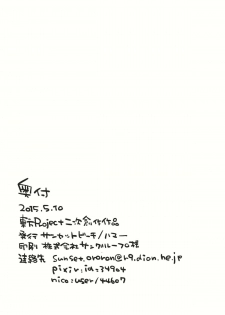 奥付
2015.5.10
東方Project二次創作作品
発行 サンセットビーチ/ハマー
印刷 株式会社サングループ 様
連絡先 sunset.ororon@i9.dion.ne.jp
pixiv:id=34904
nico:user/44607